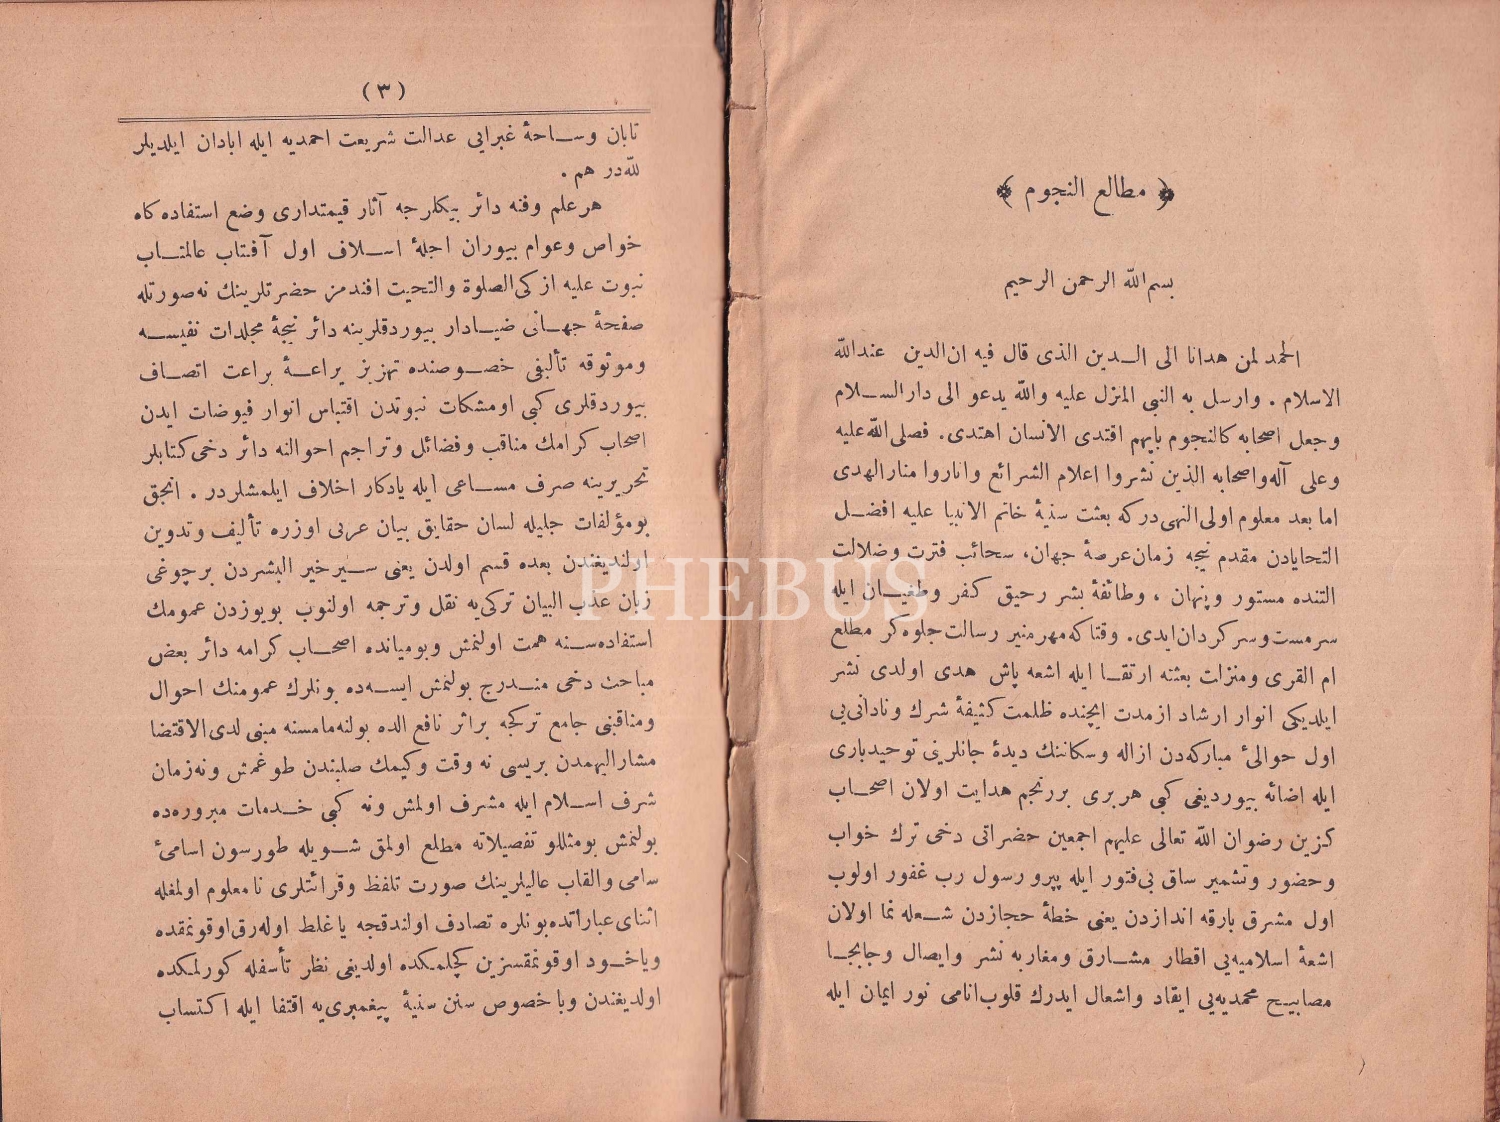 ﴿ مطالع النجوم ﴾
بسم الله الرحمن الرحيم
الحمد لمن هدانا الى الـدين الذى قال فيه ان الدين عندالله
الاسلام . وارسل به النبى المنزل عليه والله يدعو الى دارالسـلام
وجعل اصحابه كالنجوم بايهم اقتدى الانسان اهتدى. فصلى الله عليه
وعلى آله واصحابه الذين نشروا اعلام الشرائع واناروا منارالهدى
اما بعد معلوم اولى النهى دركه بعثت سنيۀ خاتم الانبيا عليه افضـل
التحايادن مقدم نيجه زمان عرصۀ جهان، سحائب فترت وضلالت
التنده مستور وپنهان ، وطائفۀ بشر رحيق كفر وطغيـان ايله
سرمست وسركردان ايدى. وقتاكه مهرمنير رسالت جلوه كر مطلع
ام القرى ومنزات بعثته ارتقـا ايله اشعه پاش هدى اولدى نشر
ايلديكى انوار ارشاد ازمدت ايچنده ظلمت كثيفۀ شرك ونادانى يى
اول حوالئ مباركه دن ازاله وسكاننك ديدۀ جانلرينى توحيدبارى
ايله اضائه بيورديغى كبى هربرى بررنجم هدايت اولان اصحـاب
كزين رضوان الله تعالى عليهم اجمعين حضراتى دخى ترك خواب
وحضور وتشمير ساق بى فتور ايله پيرو رسول رب غفور اولوب
اول مشرق بارقه اندازدن يعنى خطۀ حجازدن شـعله نما اولان
اشعۀ اسلاميه يى اقطار مشـارق ومغاربه نشر وايصال وجابجـا
مصابيـح محمديه يى ايقاد واشعال ايدرك قلوب انامى نور ايمان ايله
( ٣ )
تابان وسـاحۀ غبرايى عدالت شريعت احمديه ايله ابادان ايلديلر
لله در هم .
هرعلم وفنه دائر بيكلرجه آثار قيمتدارى وضع استفاده كاه
خواص وعوام بيوران اجلۀ اسـلاف اول آفتاب عالمتـاب
نبوت عليه ازكى الصلوة والتحيت افندمز حضرتلرينك نه صورتله
صفحۀ جهـانى ضيـادار بيوردقلرينه دائر نيجۀ مجلدات نفيسـه
وموثوقه تأليفى خصـوصنده تهزيز يراعـۀ براعت اتصـاف
بيوردقلرى كبى اومشكات نبوتدن اقتباس انوار فيوضات ايدن
اصحاب كرامك مناقب وفضائل وتراجم احوالنه دائر دخى كتابلر
تحريرينه صرف مسـاعى ايله يادكار اخلاف ايلمشلردر . انجق
بومؤلفات جليله لسان حقايق بيان عربى اوزره تأليف وتدوين
اولنديغندن بعده قسم اولدن يعنى سـير خير البشردن برچوغى
زبان عذب البيان تركى يه نقل وترجمه اولنوب بويوزدن عمومك
استفاده سـنه همت اولنمش وبوميانده اصحـاب كرامه دائر بعض
مباحث دخى منـدرج بولنمش ايسـه ده بونلرك عمومنك احوال
ومناقبنى جامع تركجه براثر نافع الده بولنه مامسنه مبنى لدى الاقتضا
مشاراليهمدن بريسى نه وقت وكيمك صلبندن طوغمش ونه زمان
شرف اسـلام ايله مشرف اولمش ونه كبى خـدمات مبروره ده
بولنمش بومثللو تفصيلاته مطلع اولمق شـويله طورسون اسامئ
سامى والقاب عاليلرينك صورت تلفظ وقرائتلرى نامعلوم اولمغله
اثناى عباراتده بونلره تصادف اولندقجه ياغلط اوله رق اوقونمقده
وياخـود اوقونمقسزين كچلمكده اولديغى نظر تأسفله كورلمكده
اولديغندن وباخصوص سنن سنيۀ پيغمبرى يه اقتفا ايله اكتساب
PHEBUS